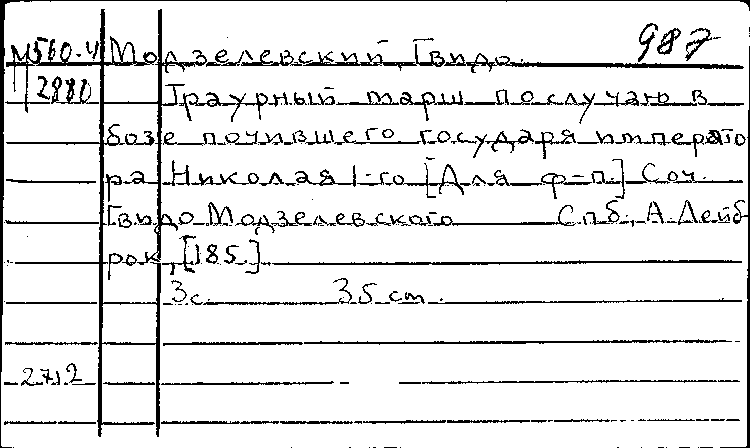 М560-4 Модзелевский, Гвидо. 987
2880 Траурный марш по случаю в
бозе почившего государя императо
ра Николая I-го [Для ф-п.] Соч.
Гвидо Модзелевского Спб., А. Лейб
рок, [185.]
3с. 35 cm.
2712